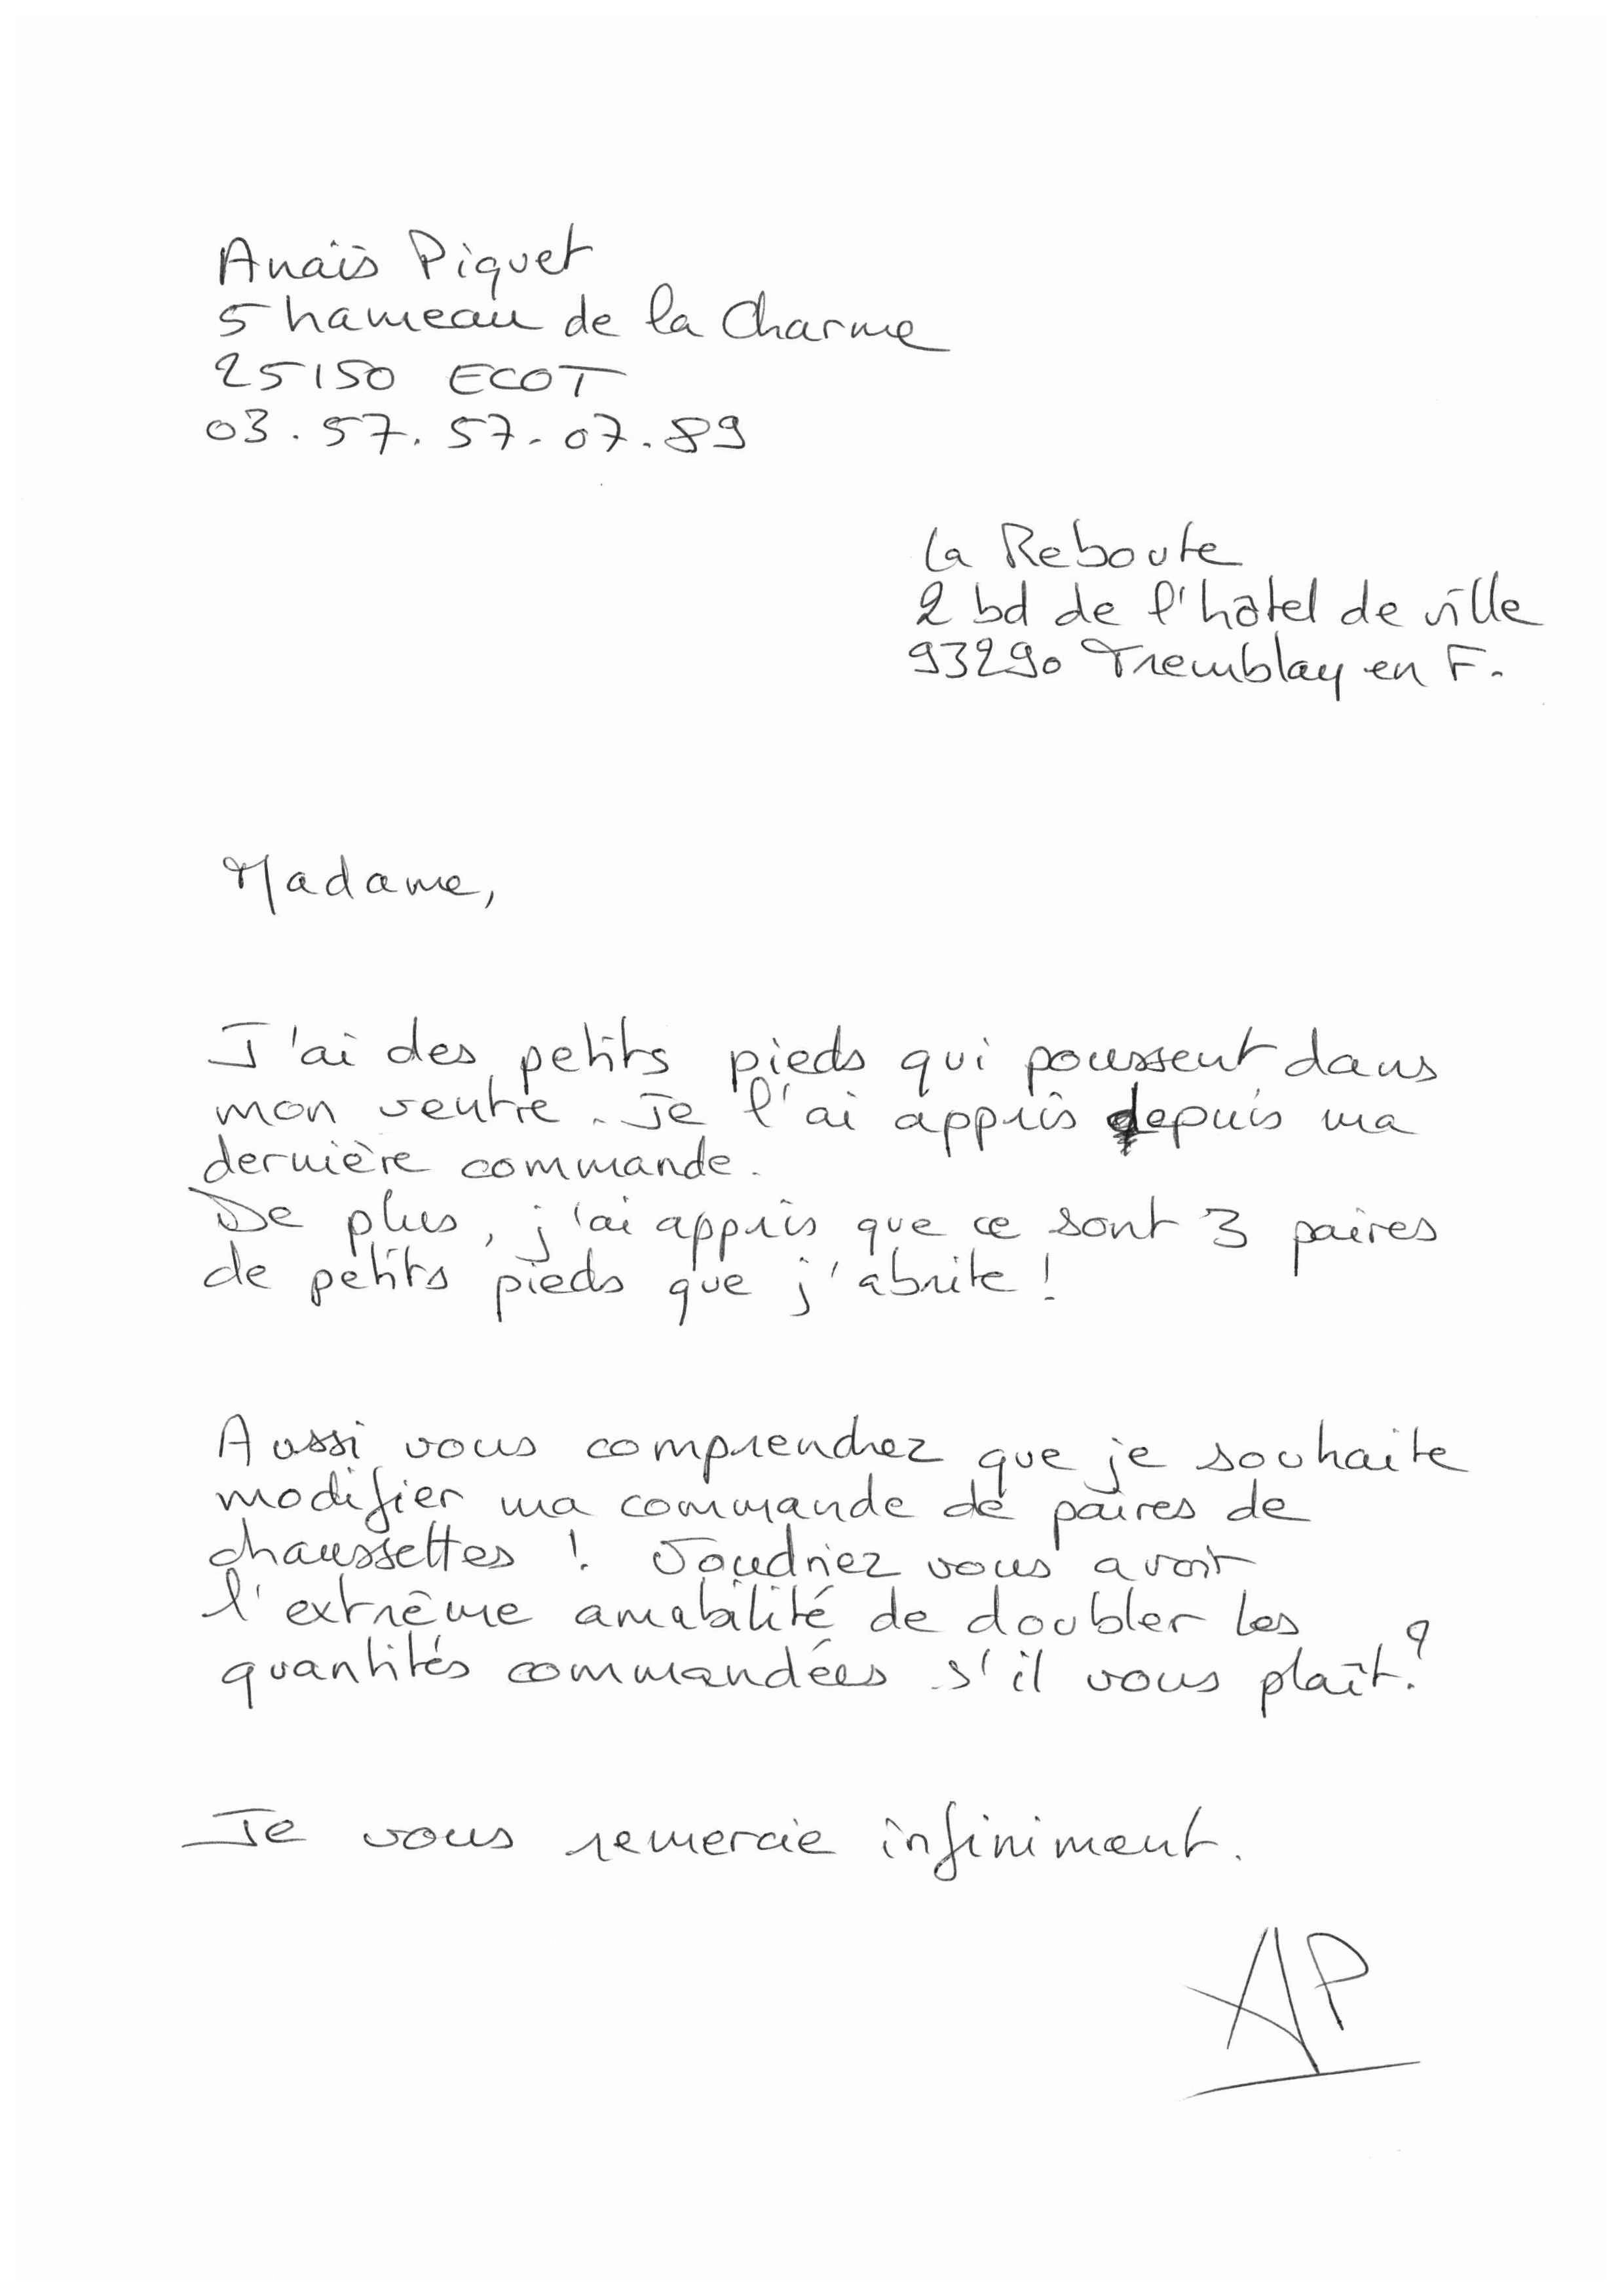 Anaïs Piquet
5 hameau de la Charme
25150 ECOT
03.57.57.07.89
La Reboute
2 bd de l'hôtel de ville
93290 Tremblay en F.
Madame,
J'ai des petits pieds qui poussent dans
mon ventre. Je l'ai appris depuis ma
dernière commande.
De plus, j'ai appris que ce sont 3 paires
de petits pieds que j'abrite !
Aussi vous comprendrez que je souhaite
modifier ma commande de paires de
chaussettes ! Voudriez vous avoir
l'extrême amabilité de doubler les
quantités commandées s'il vous plaît ?
Je vous remercie infiniment.
AP